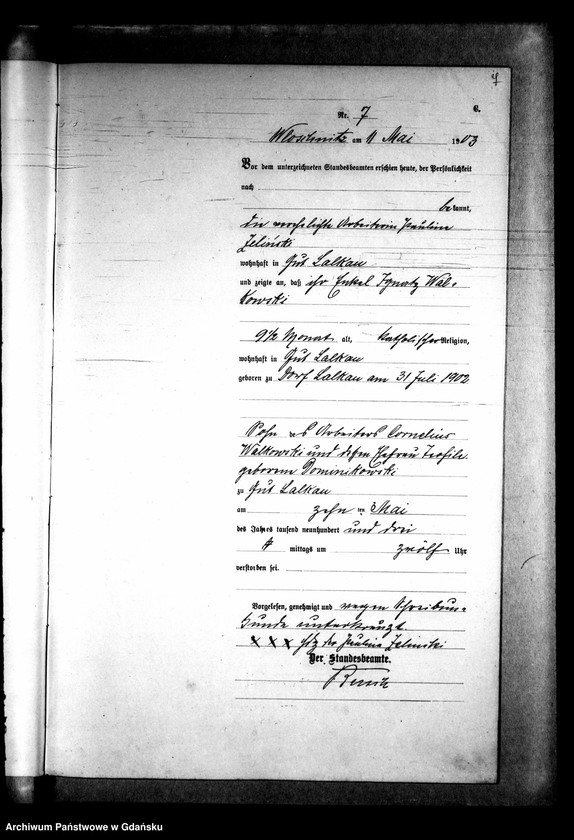 7
C.
Nr. 7
Wloschnitz am 11 Mai 1903
Vor dem unterzeichneten Standesbeamten erschien heute, der Persönlichkeit
nach
bekannt,
die verehelichte Arbeiterin Pauline
Zelinski
wohnhaft in Gut Lalkau
und zeigte an, daß ihr Enkel Ignatz Wal-
kowski
9½ Monat alt, katholischer Religion,
wohnhaft in Gut Lalkau
geboren zu Dorf Lalkau am 31 Juli 1902
Sohn des Arbeiters Cornelius
Walkowski und dessen Ehefrau Teofile
geborene Dominikowski
zu Gut Lalkau
am zehn ten Mai
des Jahres tausend neunhundert und drei
mittags um zwölf Uhr
verstorben sei.
Vorgelesen, genehmigt und wegen Schreibun-
kunde unterkreuzt
XXX Hdz der Pauline Zelinski
Der Standesbeamte.
Archiwum Państwowe w Gdańsku